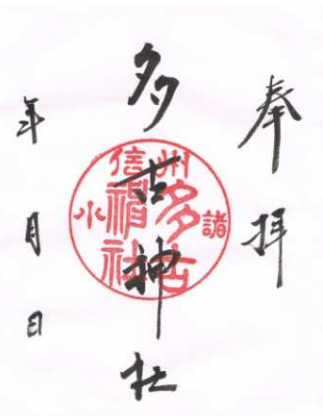 奉拝
多古神社
信州
小諸
多古神社
年月日